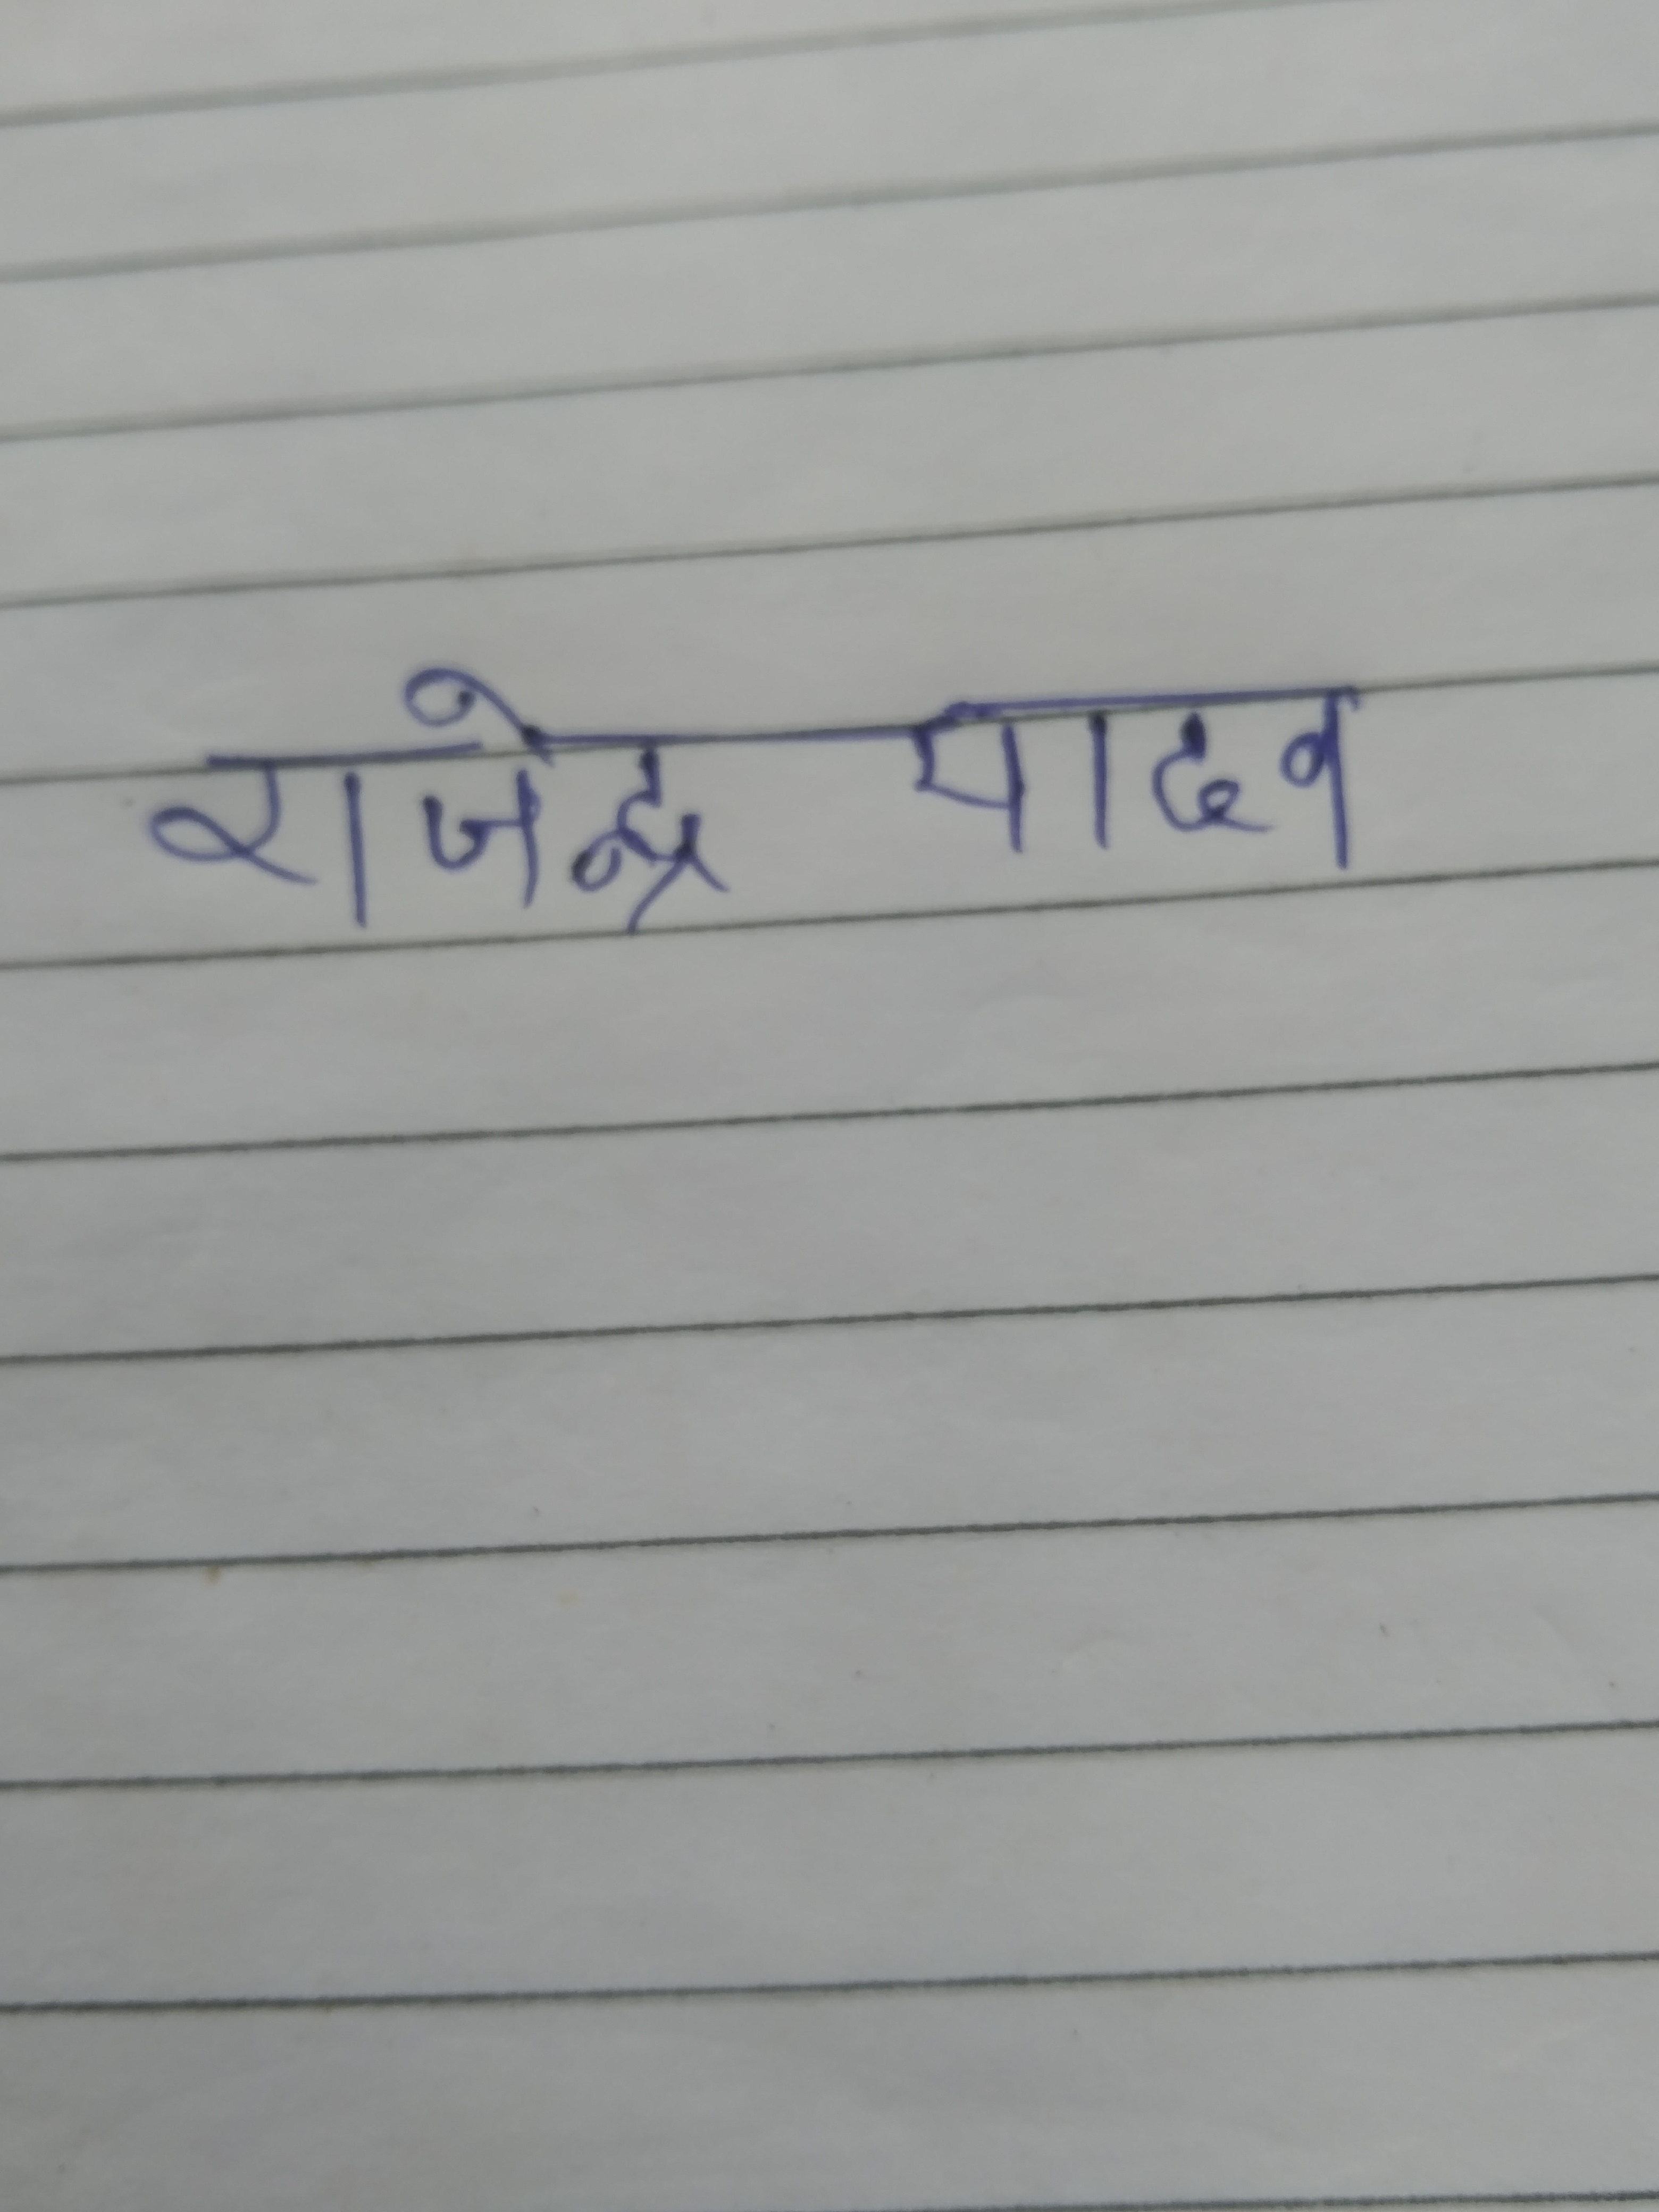 राजेन्द्र यादव